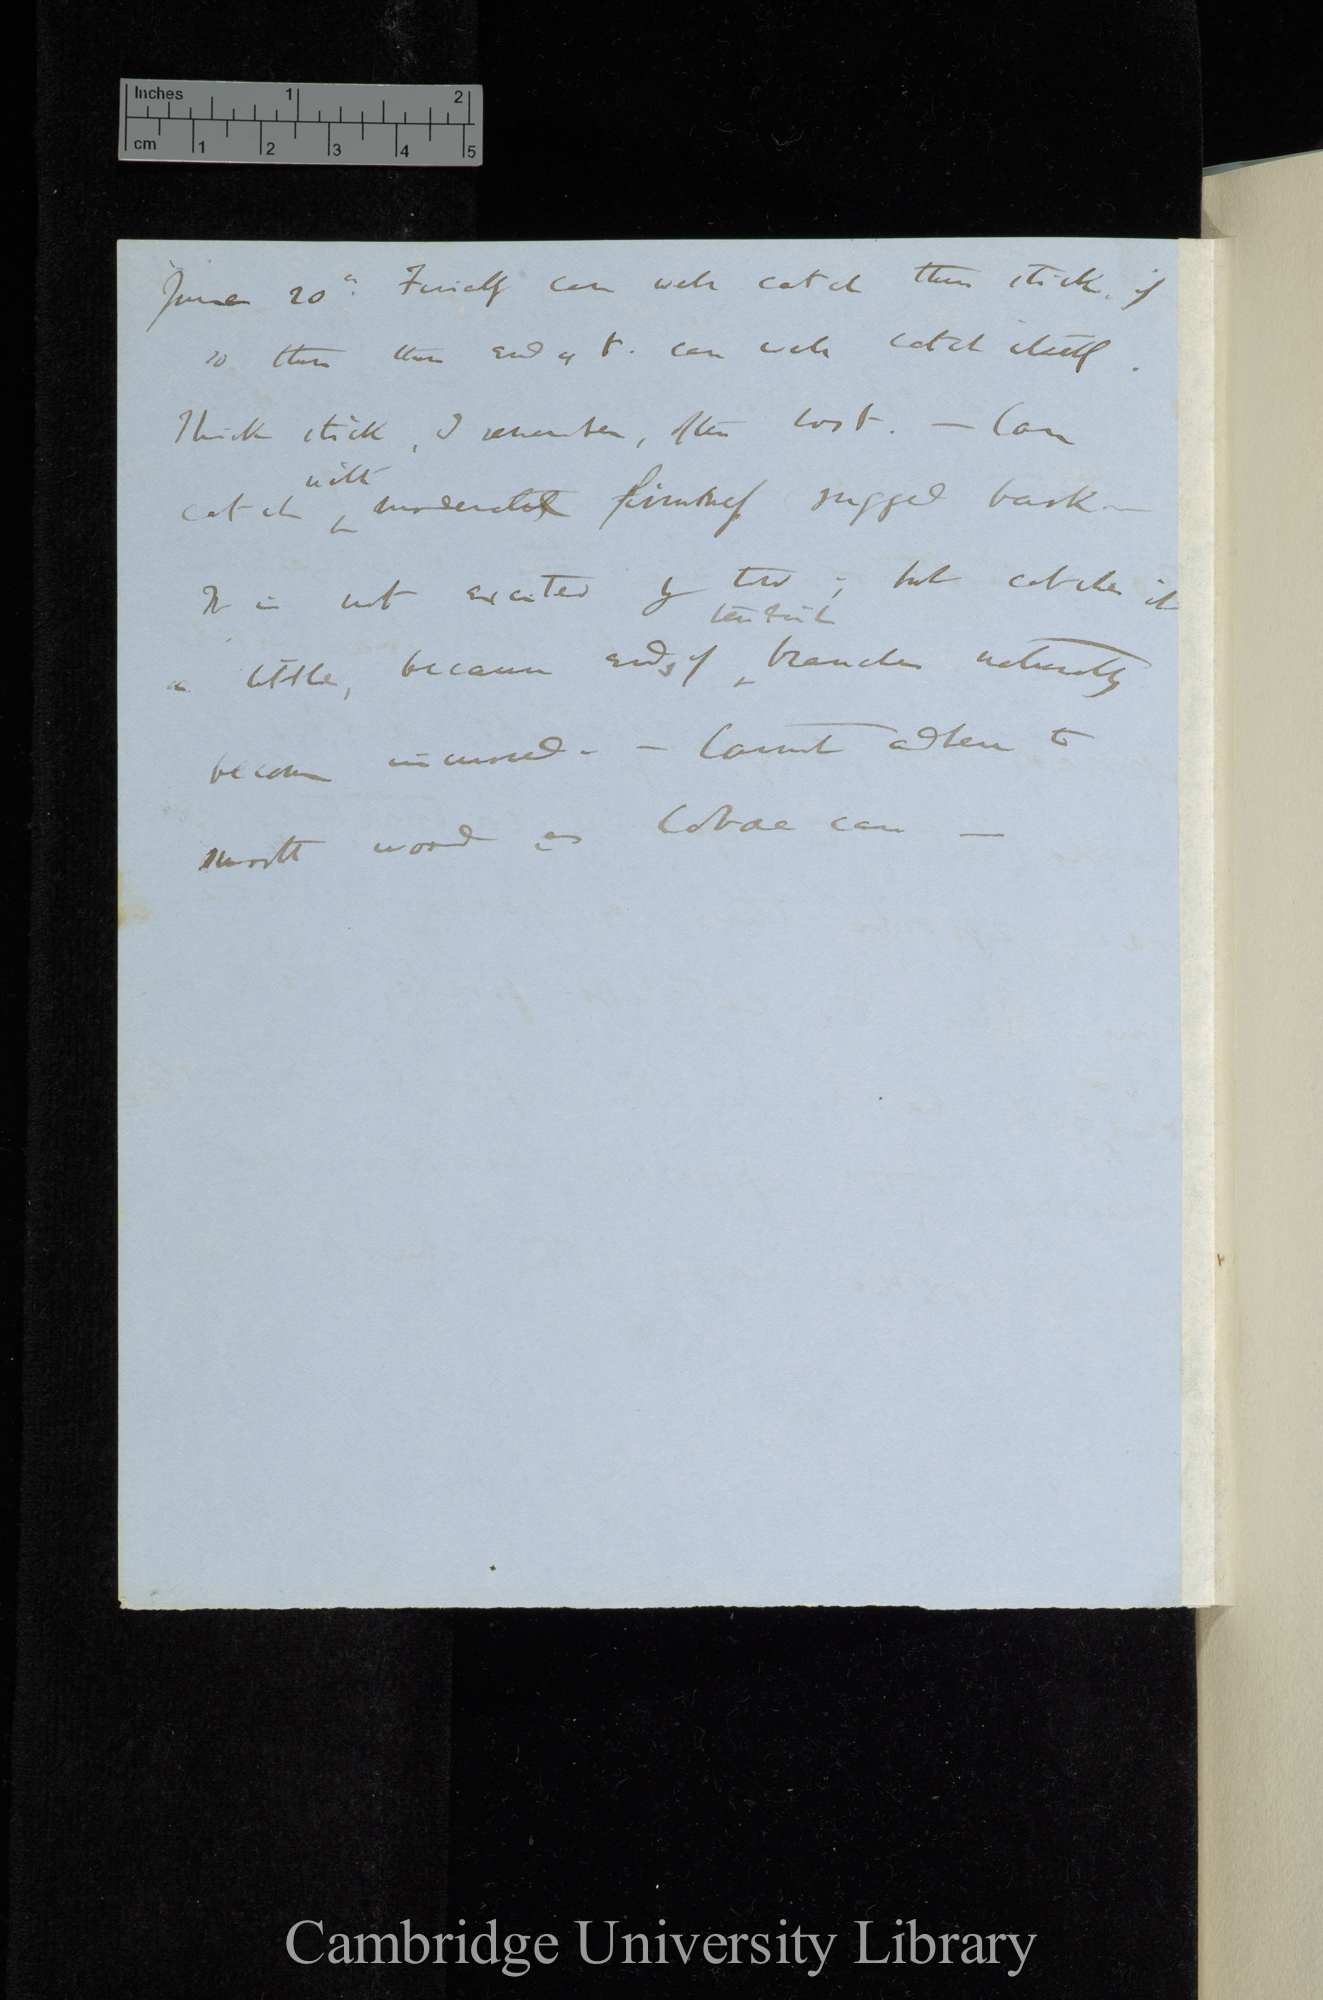 Inches 1 2
cm 1 2 3 4 5
June 20th. can well catch thin stick, if
so thin then end of t. can well catch itself.
Thick stick, I remember, often lost. — Can
with
catch moderate rugged bark —
It is not excited by two; but catches it
tendril
a little, because ends of branches naturally
become incurved. — Cannot adhere to
smooth wood as Cobæa can —
Cambridge University Library